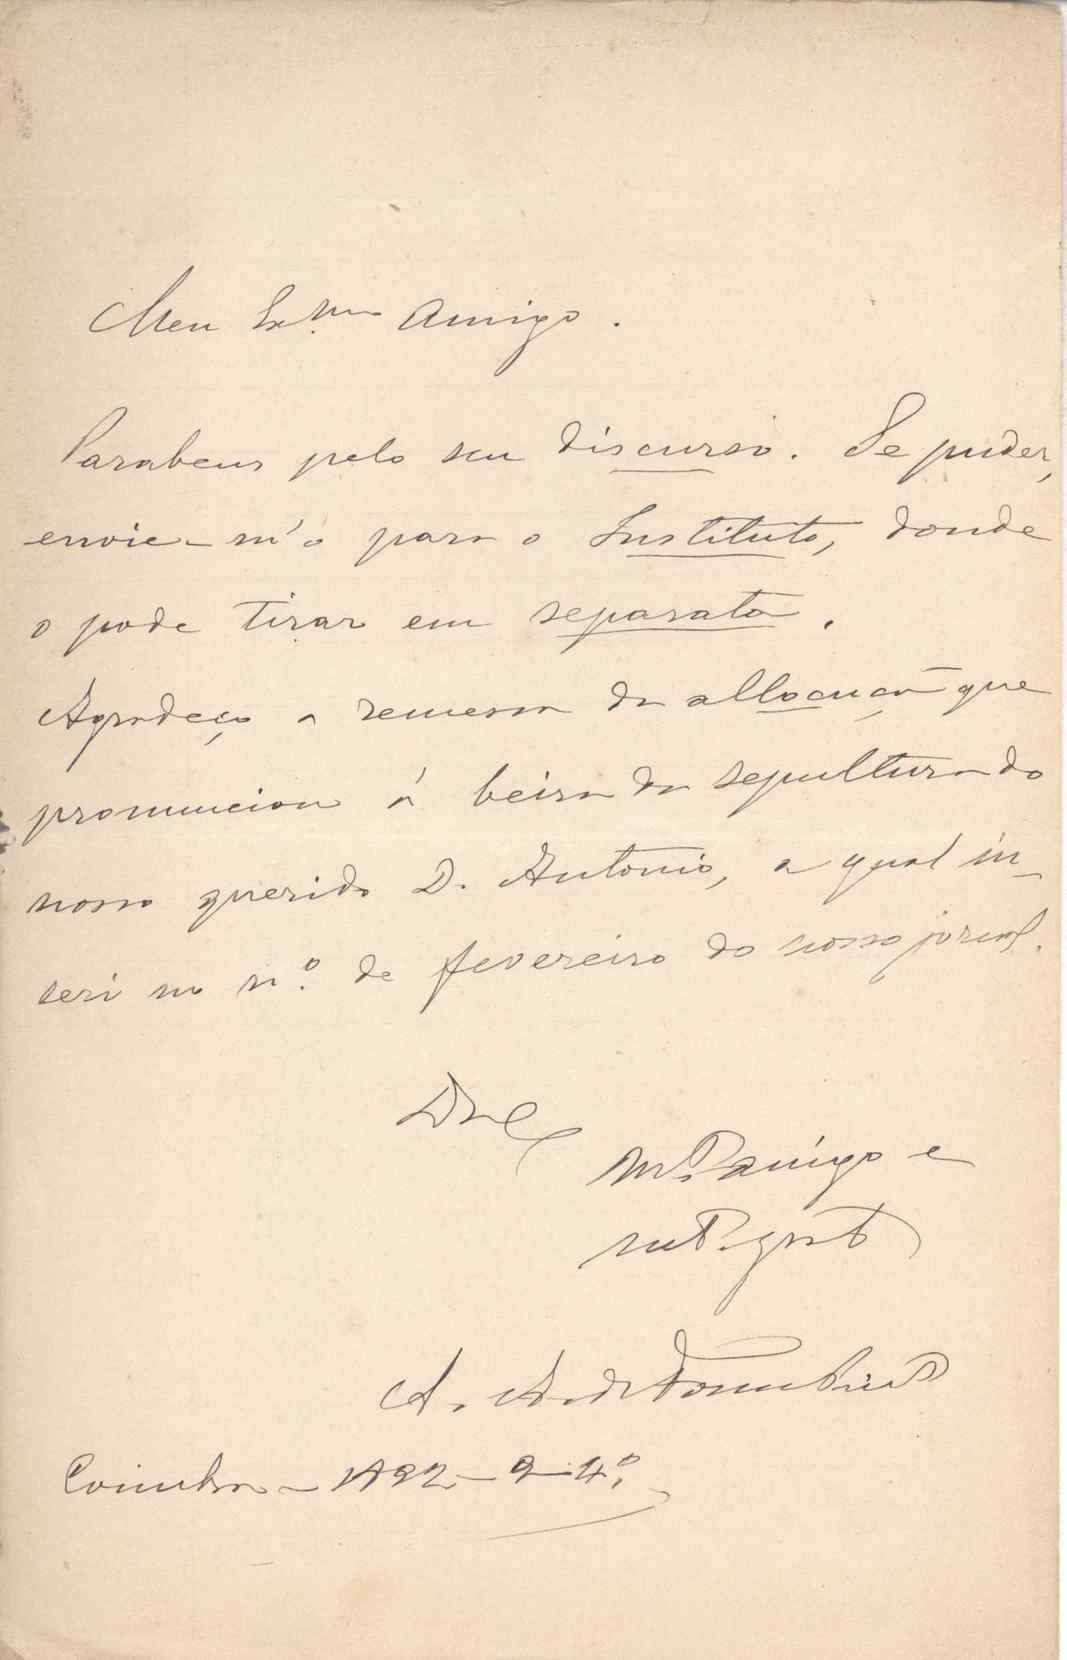 Meu Ex.mo Amigo.
Parabens pelo seu discurso. Se puder,
envie-m'o para o Instituto, donde
o pode tirar em separata.
Agradeço a remessa da allocução que
pronunciou á beira da sepultura do
nosso querido D. Antonio, a qual in-
seri no n.º de fevereiro do nosso jornal.
De V. Ex.ª
m.to amigo e
m.to grato
A. A. da
Coimbra - 1892 -